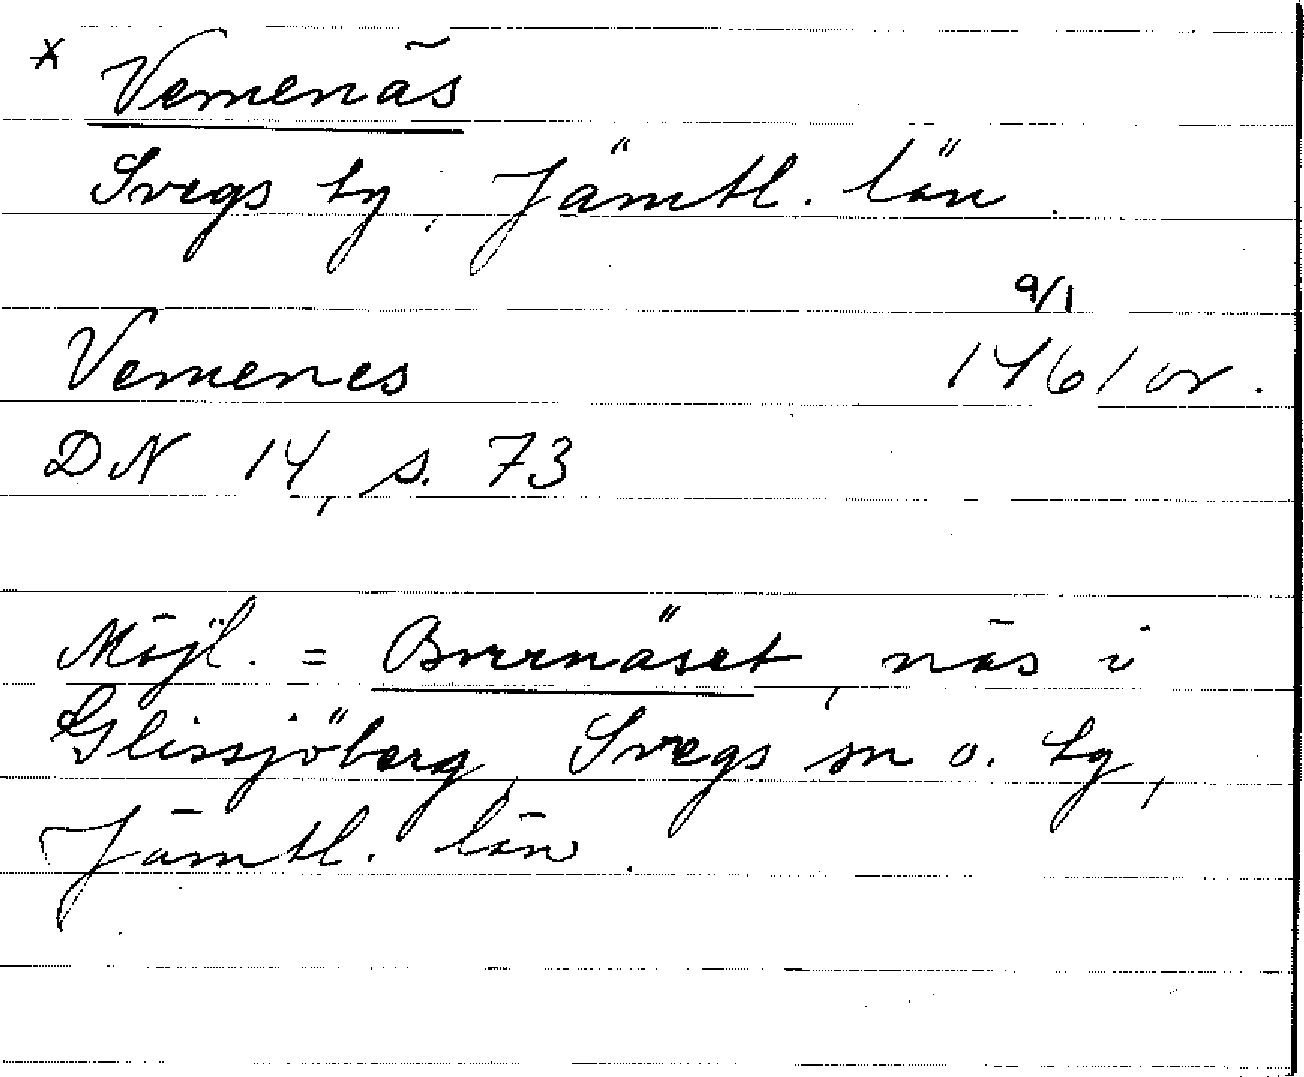 * Vemenäs
Svegs tg, Jämtl. län.
9/1
Vemenes 1461 or.
DN 14, s. 73
Möjl. = Burrnäset, näs i
Glissjöberg, Svegs sn o. tg,
Jämtl. län.